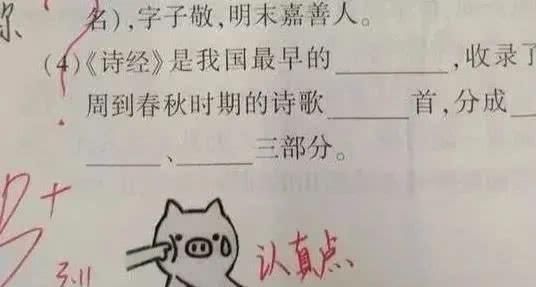 名),字子敬,明末嘉善人。
(4)《诗经》是我国最早的________,收录了
周到春秋时期的诗歌______首,分成__
______、____三部分。
认真点